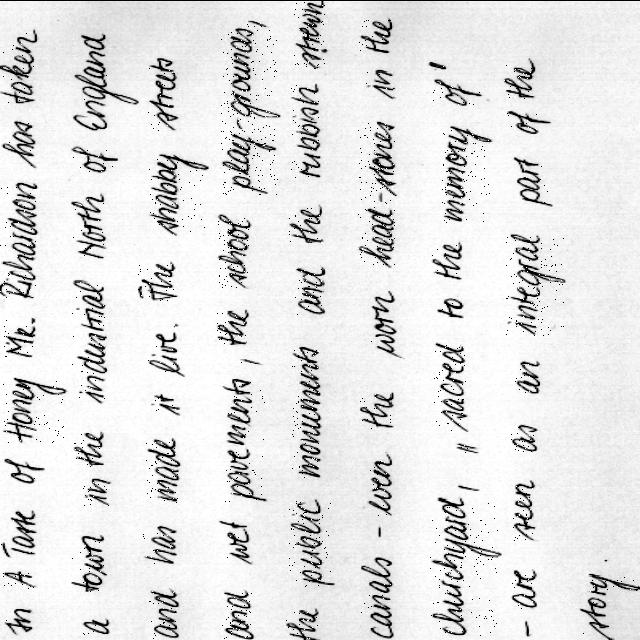 In A Taste of Honey Mr. Richardson has taken
a town in the industrial North of England
and has made it live. The shabby streets
and wet pavements, the school play-grounds,
the public monuments and the rubbish strewn
canals - even the worn head-stones in the
churchyard, "sacred to the memory of"
- are seen as an integral part of the
story.